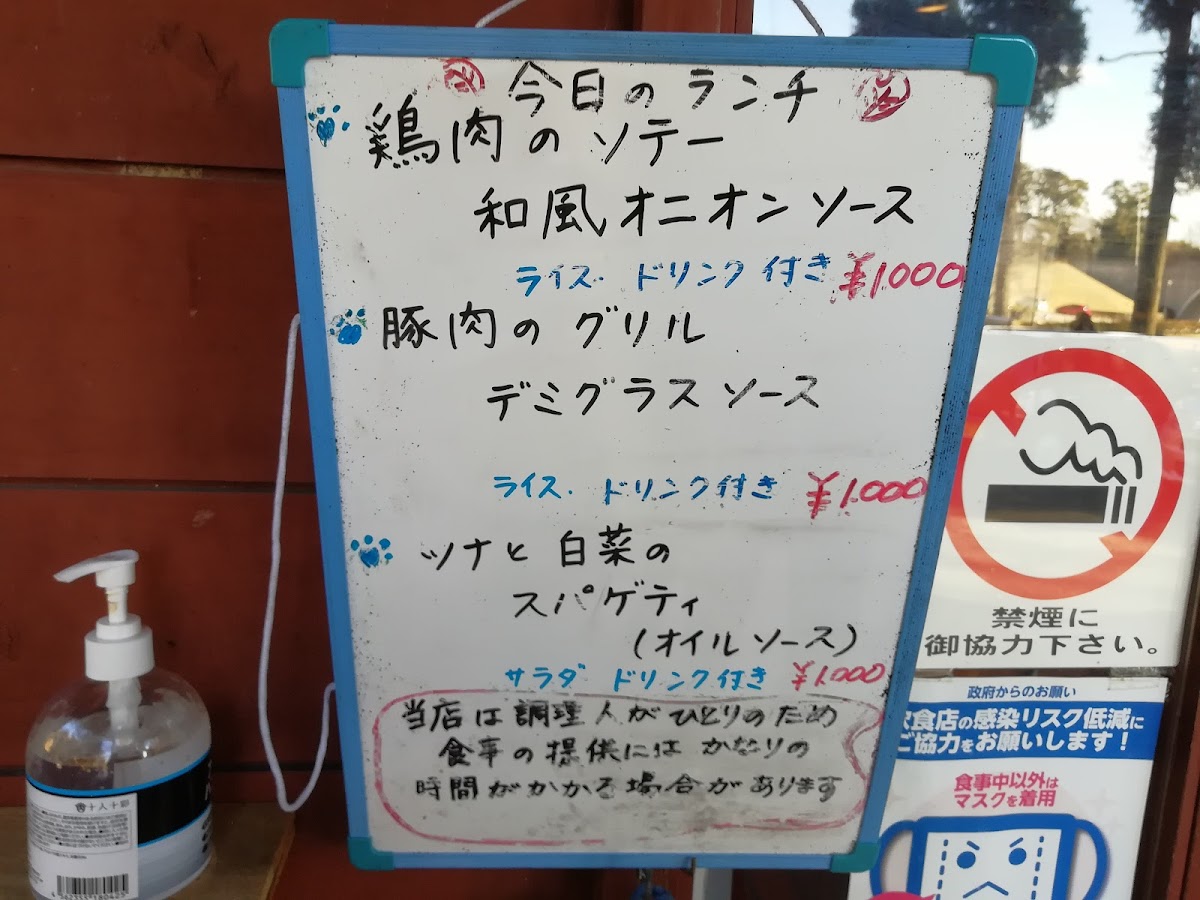 今日のランチ
鶏肉のソテー
和風オニオンソース
ライス・ドリンク付き ¥1000
豚肉のグリル
デミグラスソース
ライス・ドリンク付き ¥1.000
ツナと白菜の
スパゲティ
(オイルソース)
サラダ ドリンク付き ¥1.000
当店は調理人がひとりのため
食事の提供にはかなりの
時間がかかる場合があります
禁煙に
御協力下さい。
政府からのお願い
飲食店の感染リスク低減に
ご協力をお願いします!
食事中以外は
マスクを着用